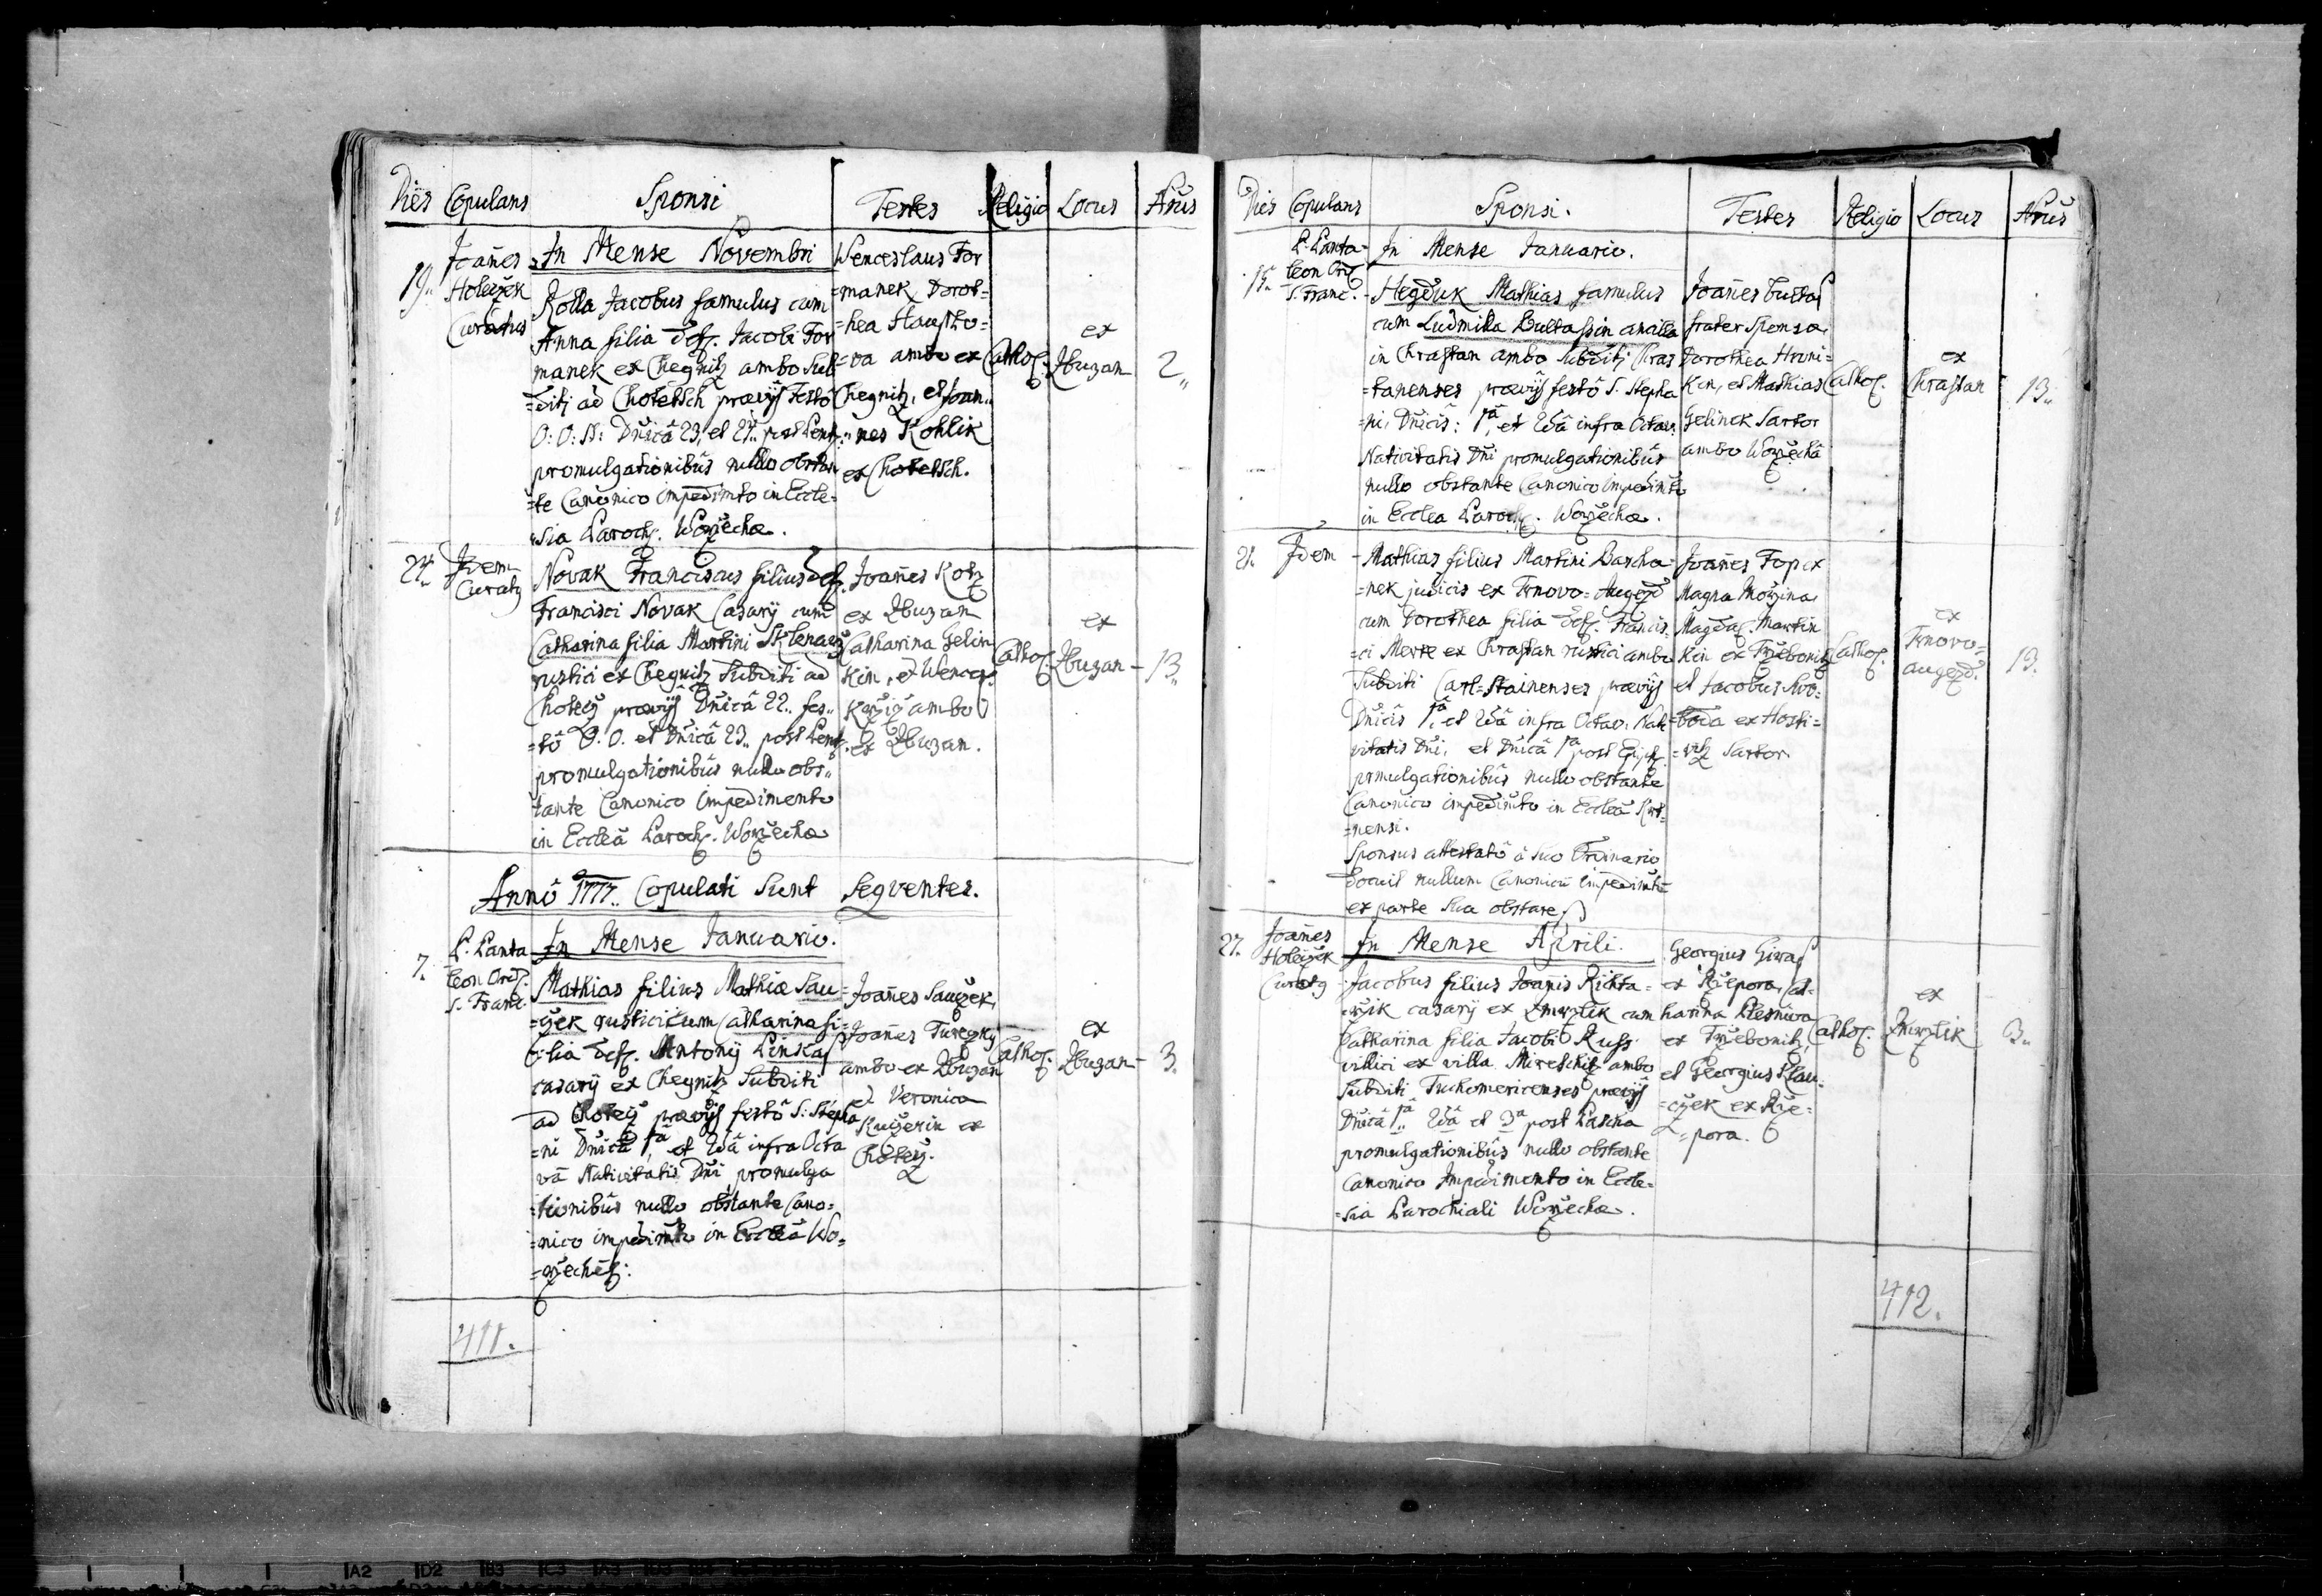 Dies Copulans Sponsi Testes Religio Locus Nrus
In Mense Novembri
19. Joanes Holeczek Curatus
Kolla Jacobus famulus cum
Anna filia Deff. Jacobi For
manek ex Chegnitz ambo Sub
=diti ad Chotetsch prævijs Festô
O: O: SS: Dnicâ 23, et 24. post Pent.
promulgationibus nullo obstan
=te Canonico impedimto in Eccle=
=sia Paroch. Worzecha.
Wenceslaus For
=manek Dorot=
=hea
=va ambo ex
Chegnitz, et Joan
=nes Kohlik
ex Chotetsch.
Cathol.
ex
Zbuzan
2
24. Idem
Curatg
Novak Franciscus filius Deff.
Francisci Novak Casarij cum
Catharina filia Martini
rustici ex Chegnitz Subditi ad
Chotecz prævijs Dnicâ 22. fes
=tô O. O. et Dnicâ 23. post Pent.
promulgationibus nullo obs
tante Canonico impedimento
in Eccleâ Paroch. Worzecha
Joanes Kotz
ex Zbuzan
Catharina Gelin
Kin, et Wences.
ambo
ex Zbuzan.
Cathol.
ex
Zbuzan
13
Annô 1777. Copulati Sunt Seqventes.
In Mense Januario.
7. P. Panta
leon Ord.
S. Franc.
Mathias filius Mathiæ Sau=
=czek rustici cum Catharina fi=
=lia Deff. Antonij Linskas
casarij ex Chegnitz Subditi
ad Chotecz prævijs festô S: Stepha
=ni Dnicâ 1â, et 2dâ infra Octa
vâ Nativitatis Dni promulga
=tionibus nullo obstante Cano=
=nico impedimto in Eccleâ Wo=
=rzech:
Joanes Sauczek,
Joanes Tureczky
ambo ex Zbuzan
et Veronica
Kuczerin ex
Chotecz.
Cathol.
ex
Zbuzan
3.
411.
Dies Copulans Sponsi. Testes Religio Locus Nrus
In Mense Januario.
15. P. Panta=
leon Ord.
S. Franc.
Hegduk Mathias famulus
cum Ludmilla Bultassin ancilla
in Chrasstan ambo Subditi Chras
=tanenses prævijs festô S. Stepha
=ni, Dnicis: 1â, et 2dâ infra Octav:
Nativitatis Dni promulgationibus
nullo obstante Canonico impedimto
in Ecclea Paroch. Worzecha.
Joanes Bultas
frater Sponsæ
Dorothea Hruni=
Kin, et Mathias
Gelinek Sartor
ambo Worzechâ
Cathol.
ex
Chrasstan
13.
21. Idem
Mathias filius Martini Barcha=
=nek judicis ex Trnovo=Augezd
cum Dorothea filia Deff. Francis
=ci Merte ex Chrasstan rustici ambo
Subditi Carl=Stainenses prævijs
Dnicis 1â, et 2dâ infra Octav: Nati
vitatis Dni, et Dnicâ 1a post Epiph.
prmulgationibus nullo obstante
Canonico impedimto in Eccleâ
=nensi.
Sponsus attestatô â Suo Ordinario
docuit nullum Canonicu impedimtu
ex parte Sua obstare.
Joanes
Magna
Magdal. Martin
Kin ex Trzebonitz
et Jacobus Svo=
=boda ex Hosti=
=witz Sartor.
Cathol.
ex
Trnovo=
augezd.
13.
In Mense Aprili.
27. Joanes
Holeczek
Curatg
Jacobus filius Joanis Richta=
=rzik casarij ex Zmrzlik cum
Catharina filia Jacobi Russ
villici ex villa Mireschitz ambo
Subditi Tuchomericenses prævijs
Dnicâ 1â 2dâ et 3a post Pascha
promulgationibus nullo obstante
Canonico Impedimento in Eccle=
=sia Parochiali Worzecha.
Georgius Giras
ex Rzepora, Cat=
harina
ex Trzebonitz,
et Georgius Slau=
=czek ex Rze=
=pora.
Cathol.
ex
Zmrzlik
3.
412.